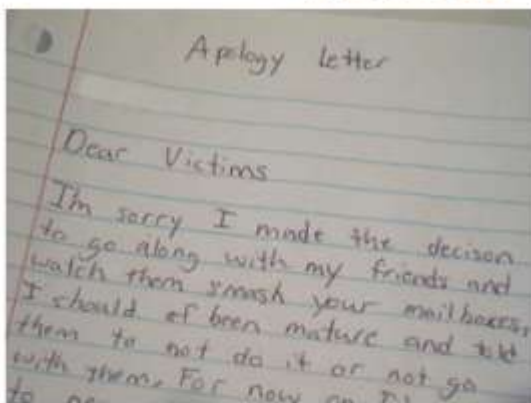 Apology letter
Dear Victims
I'm sorry I made the decison
to go along with my friends and
watch them smash your mailboxes,
I should of been mature and told
them to not do it or not go
with them. For now on I'll
to